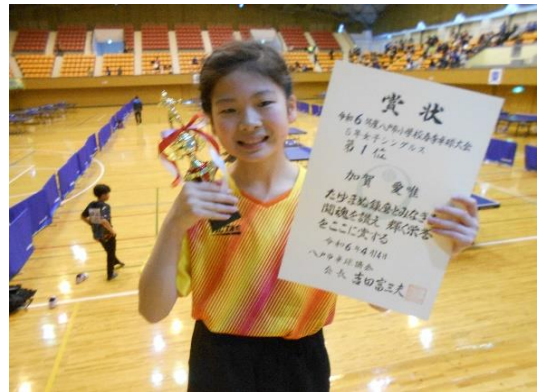 賞状
令和6年度八戸市小学校春季卓球大会
6年女子シングルス
第1位
加賀 愛唯
たゆまぬ鍛錬とみなぎる
闘魂を讃え 輝く栄誉
をここに賞する
令和6年4月14日
八戸卓球協会
会長 吉田富三夫